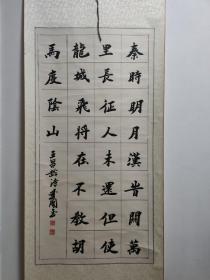 秦時明月漢旹關萬
里長征人未還但使
龍城飛將在不教胡
馬度陰山
王昌龄诗